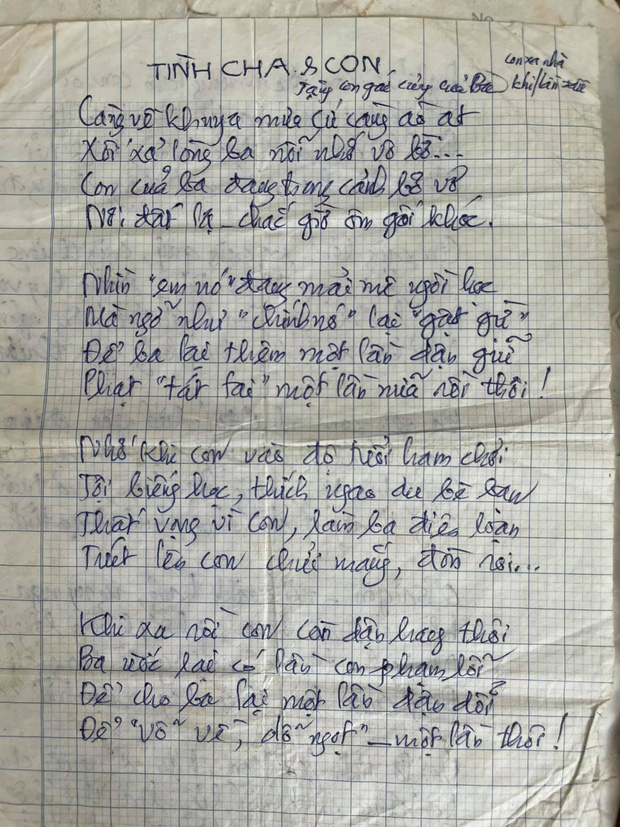 TÌNH CHA & CON
Tặng con gái cưng của Ba
con xa nhà
khi lần đầu
Càng về khuya mưa cứ càng ào ạt
Xối xả lòng ba nỗi nhớ vô bờ...
Con của ba đang trong cảnh bơ vơ
Nơi đất lạ - chắc giờ ôm gối khóc.
Nhìn "em nó" đang mải mê ngồi học
Mà ngỡ như "chính nó" lại "gật gù"
Để ba lại thêm một lần giận giữ
Phạt "tát tai" một lần nữa rồi thôi!
Nhớ khi con vào độ tuổi ham chơi
Tội biếng học, thích ngao du bè bạn
Thất vọng vì con, làm ba điên loạn
Trút lên con chửi mắng, đòn roi...
Khi xa rồi con còn giận ba thôi
Ba ước lại có lần con phạm lỗi
Để cho ba lại một lần giận dỗi
Để "vỗ về, dỗ ngọt" - một lần thôi!